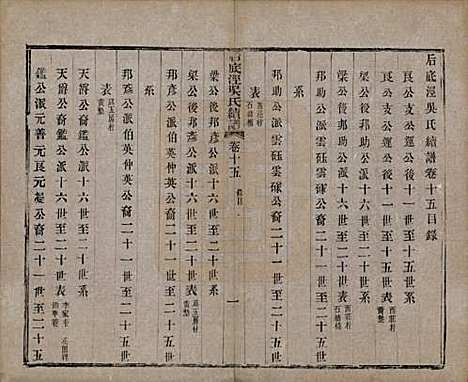 后底涇吳氏續譜卷十五目錄
良公支公運公後十一至十六世系
良公支公運公後十一至十六世表
梁公後邦助公派十六世至二十一世系
梁公後邦助公派十六世至二十一世表
邦助公派雲鈺雲確公裔二十一至二十五世系
邦助公派雲鈺雲確公裔二十一至二十五世
表
后底涇吳氏續譜 卷十五 目
一
梁公後邦彥公派十六世至二十一世系
梁公後邦彥公派十六世至二十一世表
邦彥公派伯英仲英公裔二十一至二十五世
系
邦彥公派伯英仲英公裔二十一至二十五世
表
天爵公裔鑑公派十六世至二十一世系
天爵公裔鑑公派十六世至二十一世表
鑑公派元善元良元凝公裔二十一世至二十五